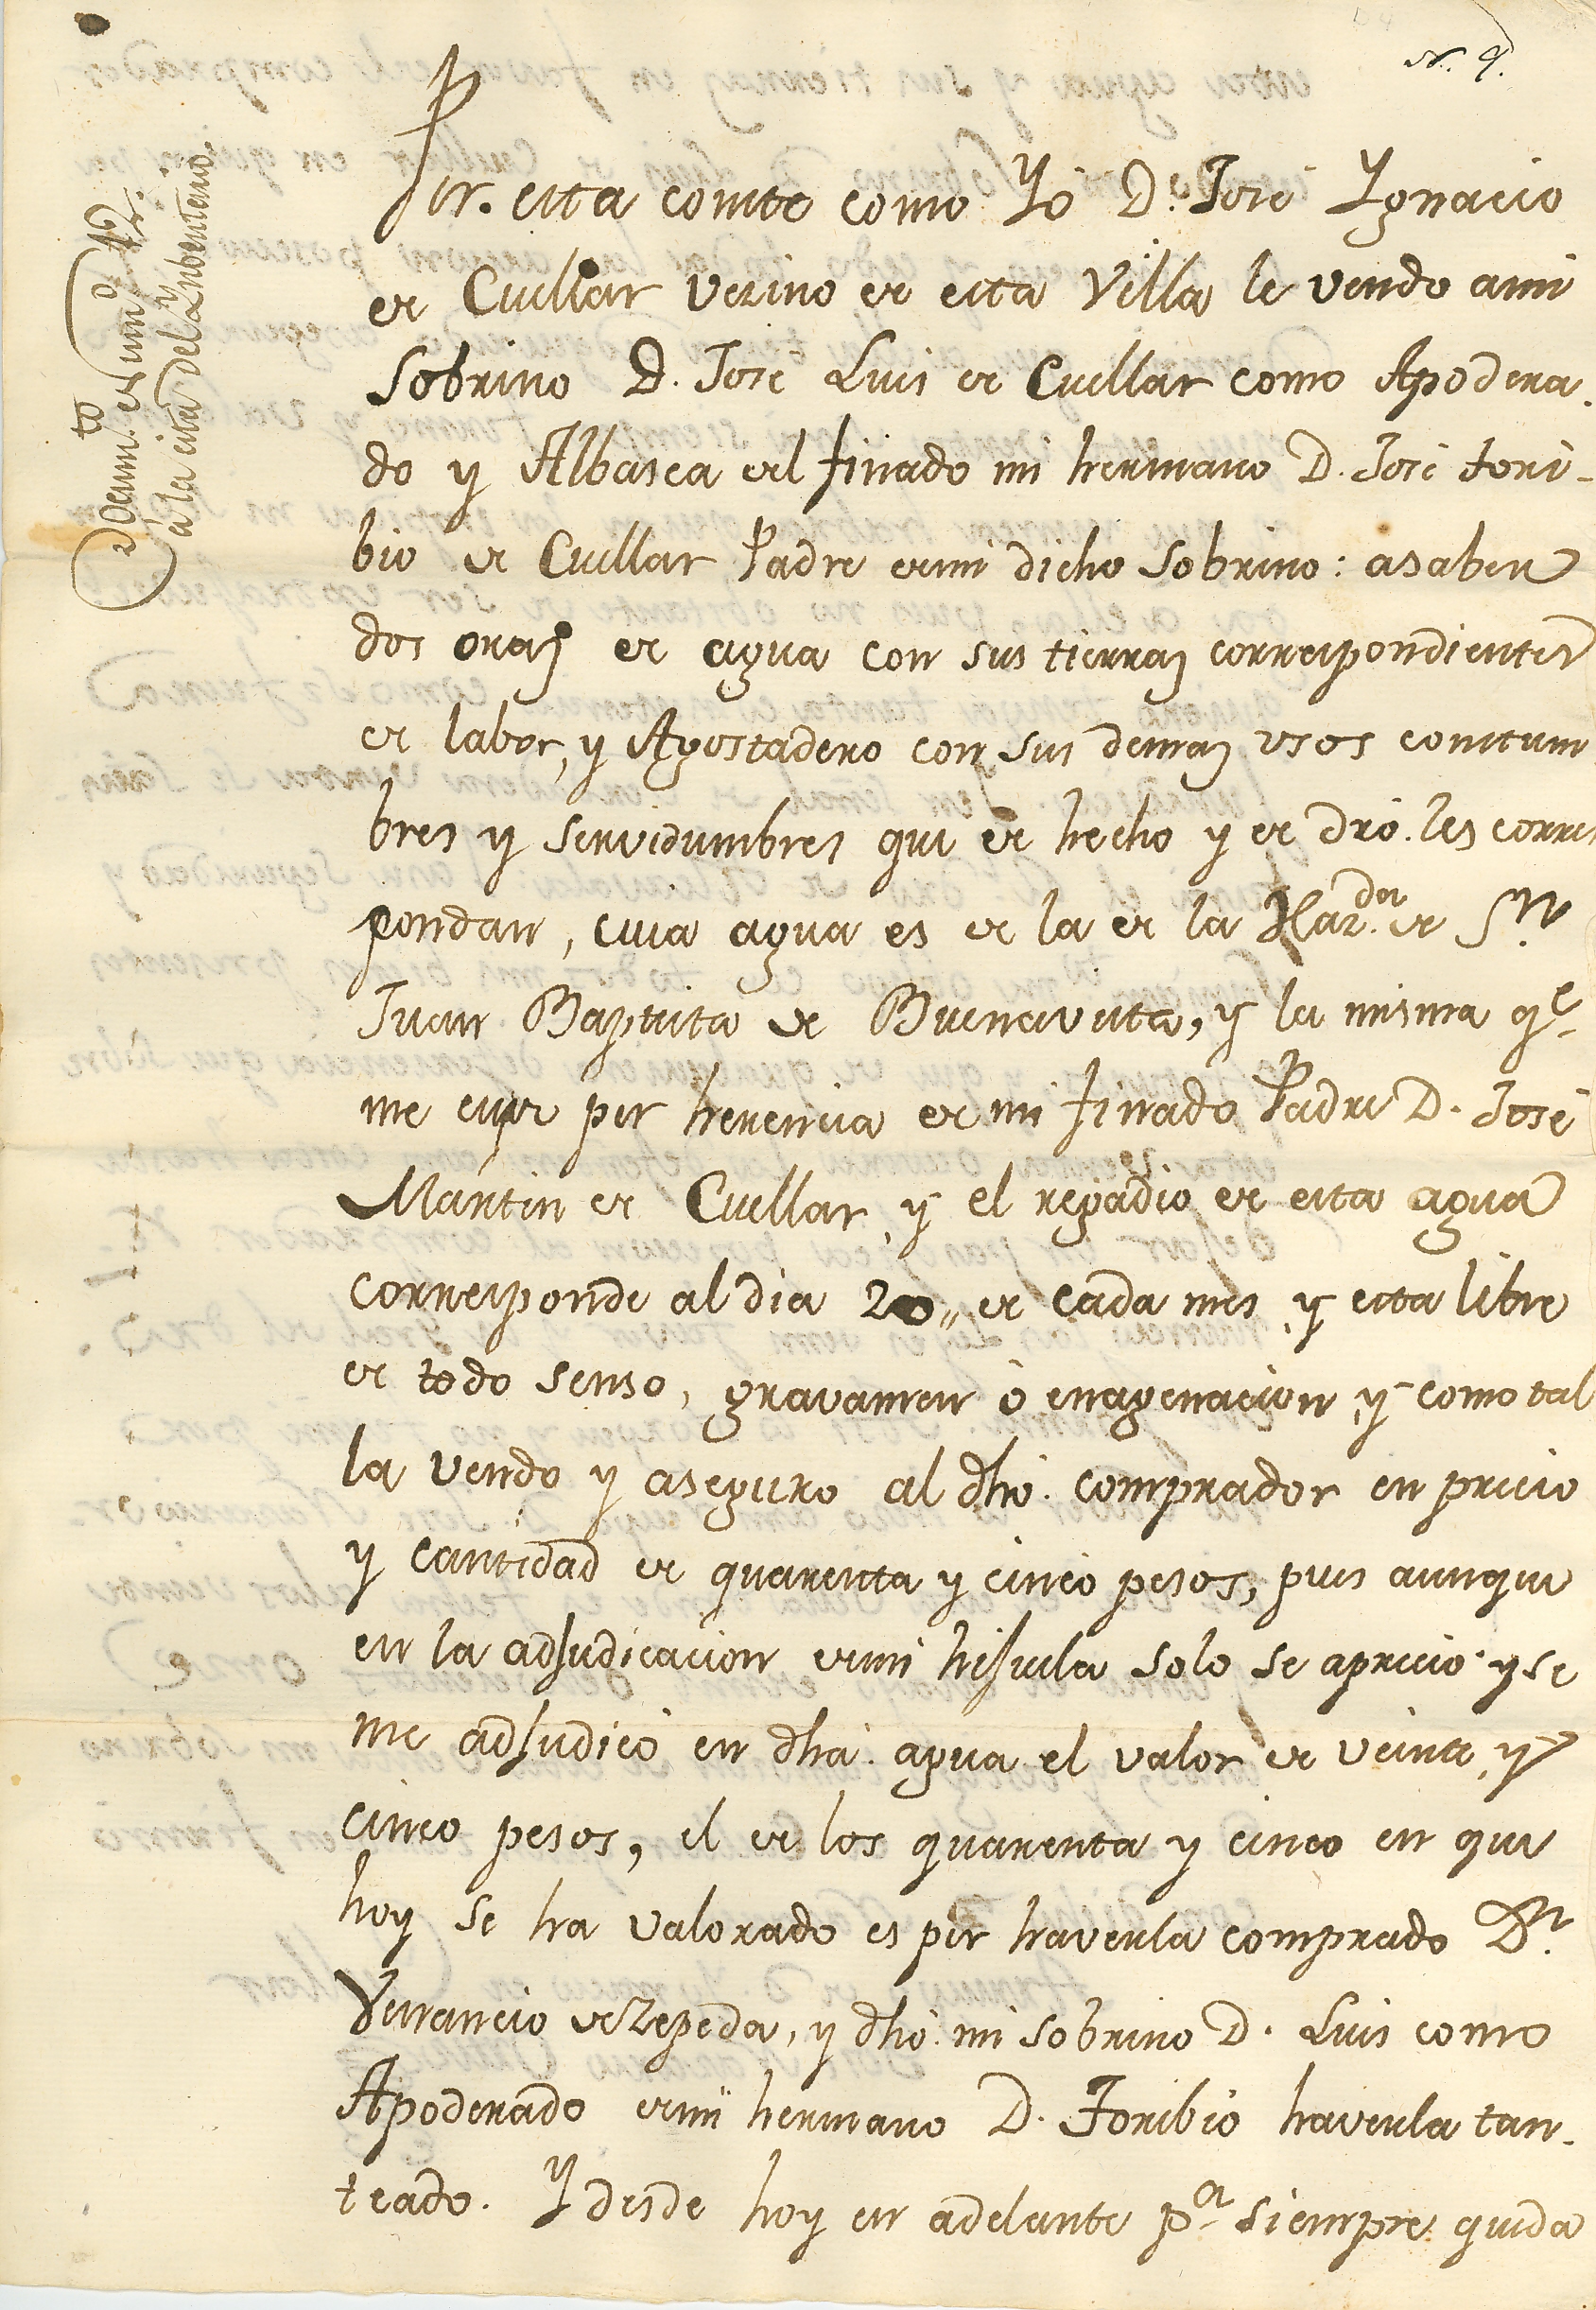 N. 9.
Docum.to de num.o 12.
á la cita del Ynbentario.
Por esta conste como Yó D.n José Ygnacio
de Cuellar vezino de esta Villa le vendo ami
Sobrino D. José Luis de Cuellar como Apodera-
do y Albasea del finado mi hermano D. José tori-
bio de Cuellar Padre demi dicho Sobrino: asaber
dos oras de agua con sus tierras correspondientes
de labor, y Agostadero con sus demas usos costum
bres y servidumbres que de hecho y de dro. les corres
pondan, cuia agua es de la de la Haz.da de S.n
Juan Baptista de Buenavista, y la misma q.e
me cupo por herencia de mi finado Padre D. José
Martin de Cuellar, y el regadio de esta agua
corresponde al dia 20,, de cada mes, y esta libre
de todo senso, gravamen ó enagenacion, y como tal
la vendo y aseguro al dho. comprador en precio
y cantidad de quarenta y cinco pesos, pues aunque
en la adjudicacion demi hijuela solo se aprecio y se
me adjudicó en dha. agua el valor de veinte, y
cinco pesos, el de los quarenta y cinco en que
hoy se ha valorado es por haverla comprado D.n
Venancio de Zepeda, y dho. mi sobrino D. Luis como
Apoderado demi hermano D. Toribio haverla tan-
teado. Y desde hoy en adelante p.a siempre queda